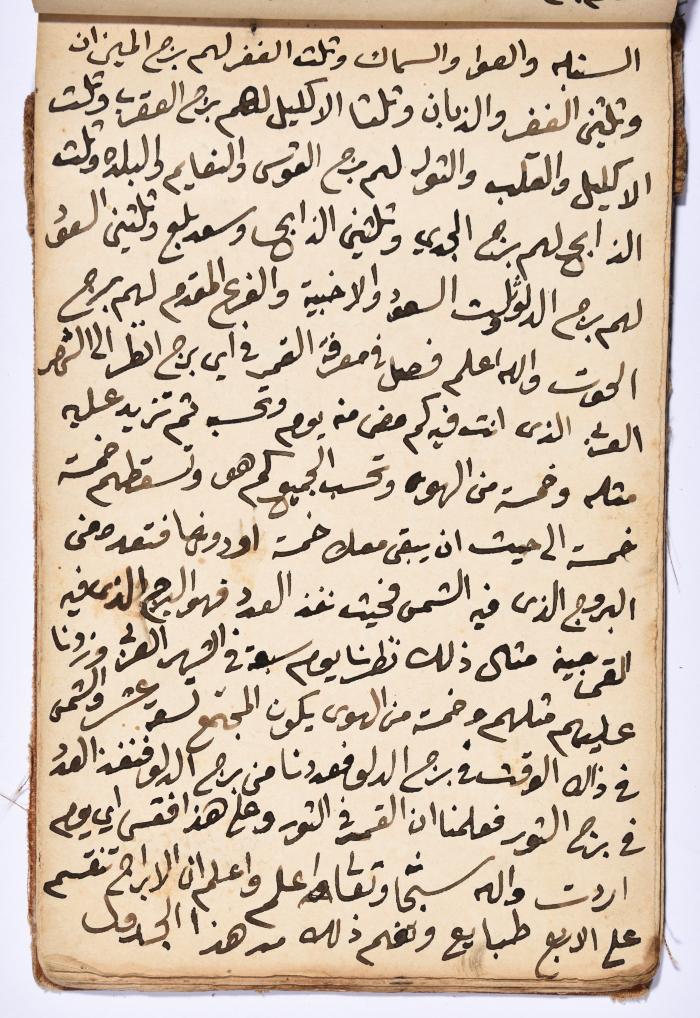 السنبله والعوا والسماك وثلث الغفر لهم برج الميزان
وثلثي الغفر والذبان وثلثا الاكليل لهم برج العقرب وثلث
الاكليل والقلب والشوله لهم برج القوس والنعايم والبلده وثلث
الذابح لهم برج الجدي وثلثي الذابح وسعد بلع وثلثي السعود
لهم برج الدلو وثلث السعود والاخبية والفرع المقدم لهم برج
الحوت والله اعلم فصل في معرفة القمر في اي برج انظر الى الشهر
العربي الذى انت فيه كم مضى منه يوم وتحسب ثم تزيد عليه
مثله وخمسة من الهوى وتحسب الجميع كم هو وتسقطهم خمسة
خمسة الى حيث ان يبقى معك خمسة او دونها فتعده من
البروج الذى فيه الشمس فحيث نفذ العدد فهو البرج الذى فيه
القمر مثال ذلك نظرنا يوم سبعة في الشهر العربي وزدنا
عليهم مثلهم وخمسة من الهوى يكون المجتمع تسعة عشر والشمس
في ذاك الوقت في برج الدلو فعددنا من برج الدلو فنفذ العدد
في برج الثور فعلمنا ان القمر في الثور وعلى هذا فقس اي يوم
اردت والله سبحانه وتعالى اعلم واعلم ان الابراج تنقسم
على الاربع طبايع وتفهم ذلك من هذا الجدول